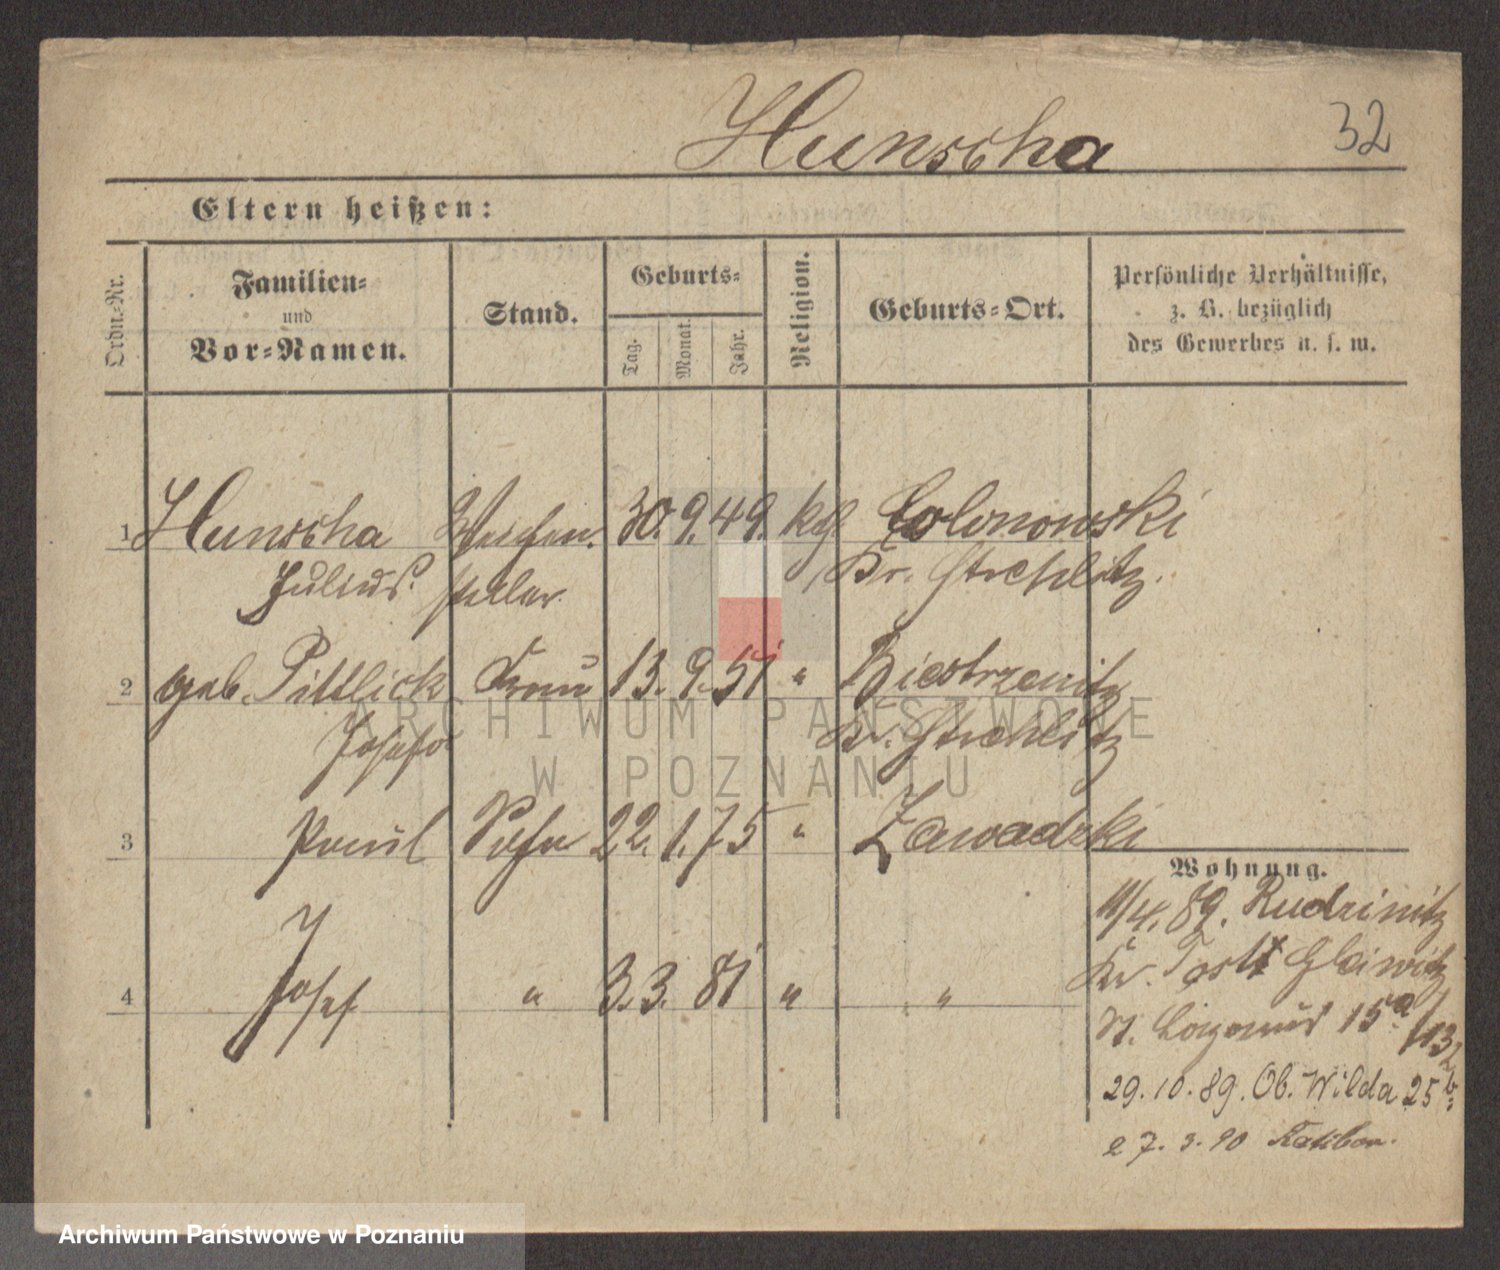 Hunscha
32
Eltern heißen:
Ordn.-Nr.
Familien-
und
Vor-Namen.
Stand.
Geburts-
Tag.
Monat.
Jahr.
Religion.
Geburts-Ort.
Persönliche Verhältnisse,
z. B. bezüglich
des Gewerbes u. s. w.
1 Hunscha Weichen 30. 9. 49. kth Colonowski
Julius. steller. Kr. Strehlitz.
2 geb. Pittlick Frau 13. 9. 51 " Biestrzenitz
Josefa Kr. Strehlitz
3 Paul Sohn 22. 1. 75 " Zawadzki
4 Josef " 3. 3. 81 " "
Wohnung.
11/4. 89. Rudzinitz
Kr. Tost Gleiwitz
St. 15a/132
29. 10. 89. Ob. Wilda 25b.
27. 3. 90 Ratibor.
ARCHIWUM PAŃSTWOWE
W POZNANIU
Archiwum Państwowe w Poznaniu